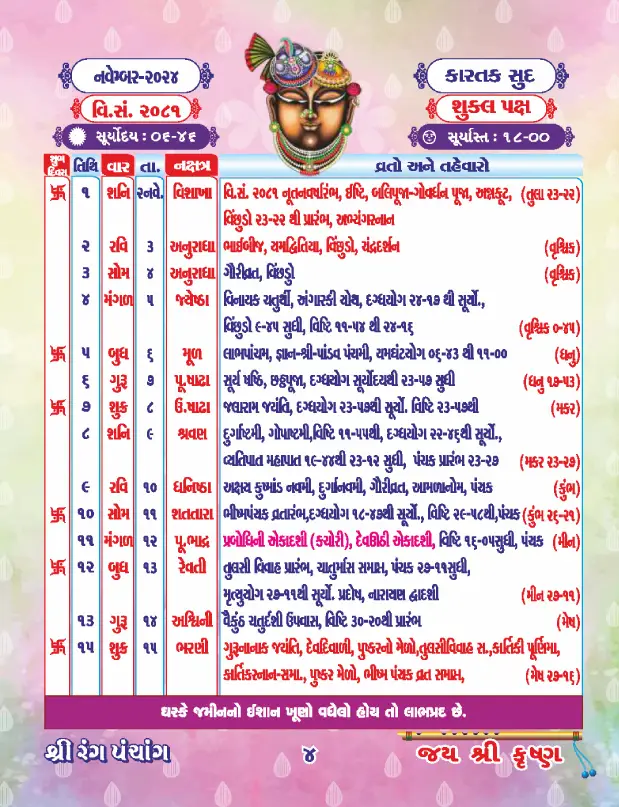 નવેમ્બર-૨૦૨૪
કારતક સુદ
વિ.સં. ૨૦૮૧
શુક્લ પક્ષ
સૂર્યોદય : ૦૬-૪૬
સૂર્યાસ્ત : ૧૮-૦૦
શુભ દિવસ તિથિ વાર તા. નક્ષત્ર વ્રતો અને તહેવારો
૧ શનિ ૨નવે. વિશાખા વિ.સં. ૨૦૮૧ નૂતનવર્ષારંભ, ઈષ્ટિ, બલિપૂજા-ગોવર્ધન પૂજા, અન્નકૂટ, (તુલા ૨૩-૨૨)
વિંછુડો ૨૩-૨૨ થી પ્રારંભ, અભ્યંગસ્નાન
૨ રવિ ૩ અનુરાધા ભાઈબીજ, યમદ્વિતિયા, વિંછુડો, ચંદ્રદર્શન (વૃશ્ચિક)
૩ સોમ ૪ અનુરાધા ગૌરીવ્રત, વિંછડો (વૃશ્ચિક)
૪ મંગળ ૫ જ્યેષ્ઠા વિનાયક ચતુર્થી, અંગારકી ચોથ, દગ્ધયોગ ૨૪-૧૭ થી સૂર્યો.,
વિંછુડો ૯-૪૫ સુધી, વિષ્ટિ ૧૧-૫૪ થી ૨૪-૧૬ (વૃશ્ચિક ૦-૪૫)
૫ બુધ ૬ મૂળ લાભપાંચમ, જ્ઞાન-શ્રી-પાંડવ પંચમી, યમઘંટયોગ ૦૬-૪૩ થી ૧૧-૦૦ (ધનુ)
૬ ગુરૂ ૭ પૂ.ષાઢા સૂર્ય ષષ્ઠિ, છઠ્ઠપૂજા, દગ્ધયોગ સૂર્યોદયથી ૨૩-૫૭ સુધી (ધનુ ૧૭-૫૩)
૭ શુક ૮ ઉ.ષાઢા જલારામ જયંતિ, દગ્ધયોગ ૨૩-૫૭થી સૂર્યો. વિષ્ટિ ૨૩-૫૭થી (મકર)
૮ શનિ ૯ શ્રવણ દુર્ગાષ્ટમી, ગોપાષ્ટમી,વિષ્ટિ ૧૧-૫૫થી, દગ્ધયોગ ૨૨-૪૬થી સૂર્યો.,
વ્યતિપાત મહાપાત ૧૯-૪૪થી ૨૩-૧૨ સુધી, પંચક પ્રારંભ ૨૩-૨૭ (મકર ૨૩-૨૭)
૯ રવિ ૧૦ ધનિષ્ઠા અક્ષય કુષ્માંડ નવમી, દુર્ગાનવમી, ગૌરીવ્રત, આમળાનોમ, પંચક (કુંભ)
૧૦ સોમ ૧૧ શતતારા ભીષ્મપંચક વ્રતારંભ,દગ્ધયોગ ૧૮-૪૭થી સૂર્યો., વિષ્ટિ ૨૯-૫૮થી,પંચક (કુંભ ૨૬-૨૧)
૧૧ મંગળ ૧૨ પૂ.ભાદ્ર પ્રબોધિની એકાદશી (કચોરી), દેવઊઠી એકાદશી, વિષ્ટિ ૧૬-૦૫સુધી, પંચક (મીન)
૧૨ બુધ ૧૩ રેવતી તુલસી વિવાહ પ્રારંભ, ચાતુર્માસ સમાપ્ત, પંચક ૨૭-૧૧સુધી,
મૃત્યુયોગ ૨૭-૧૧થી સૂર્યો. પ્રદોષ, નારાયણ દ્વાદશી (મીન ૨૭-૧૧)
૧૩ ગુરૂ ૧૪ અશ્વિની વૈકુંઠ ચતુર્દશી ઉપવાસ, વિષ્ટિ ૩૦-૨૦થી પ્રારંભ (મેષ)
૧૫ શુક ૧૫ ભરણી ગુરૂનાનાક જયંતિ, દેવદિવાળી, પુષ્કરનો મેળો,તુલસીવિવાહ સ.,કાર્તિકી પૂર્ણિમા,
કાર્તિકસ્નાન-સમા., પુષ્કર મેળો, ભીષ્મ પંચક વ્રત સમાપ્ત, (મેષ ૨૭-૧૬)
ઘરકે જમીનનો ઈશાન ખૂણો વધેલો હોય તો લાભપ્રદ છે.
શ્રી રંગ પંચાંગ ૪ જય શ્રી કૃષ્ણ